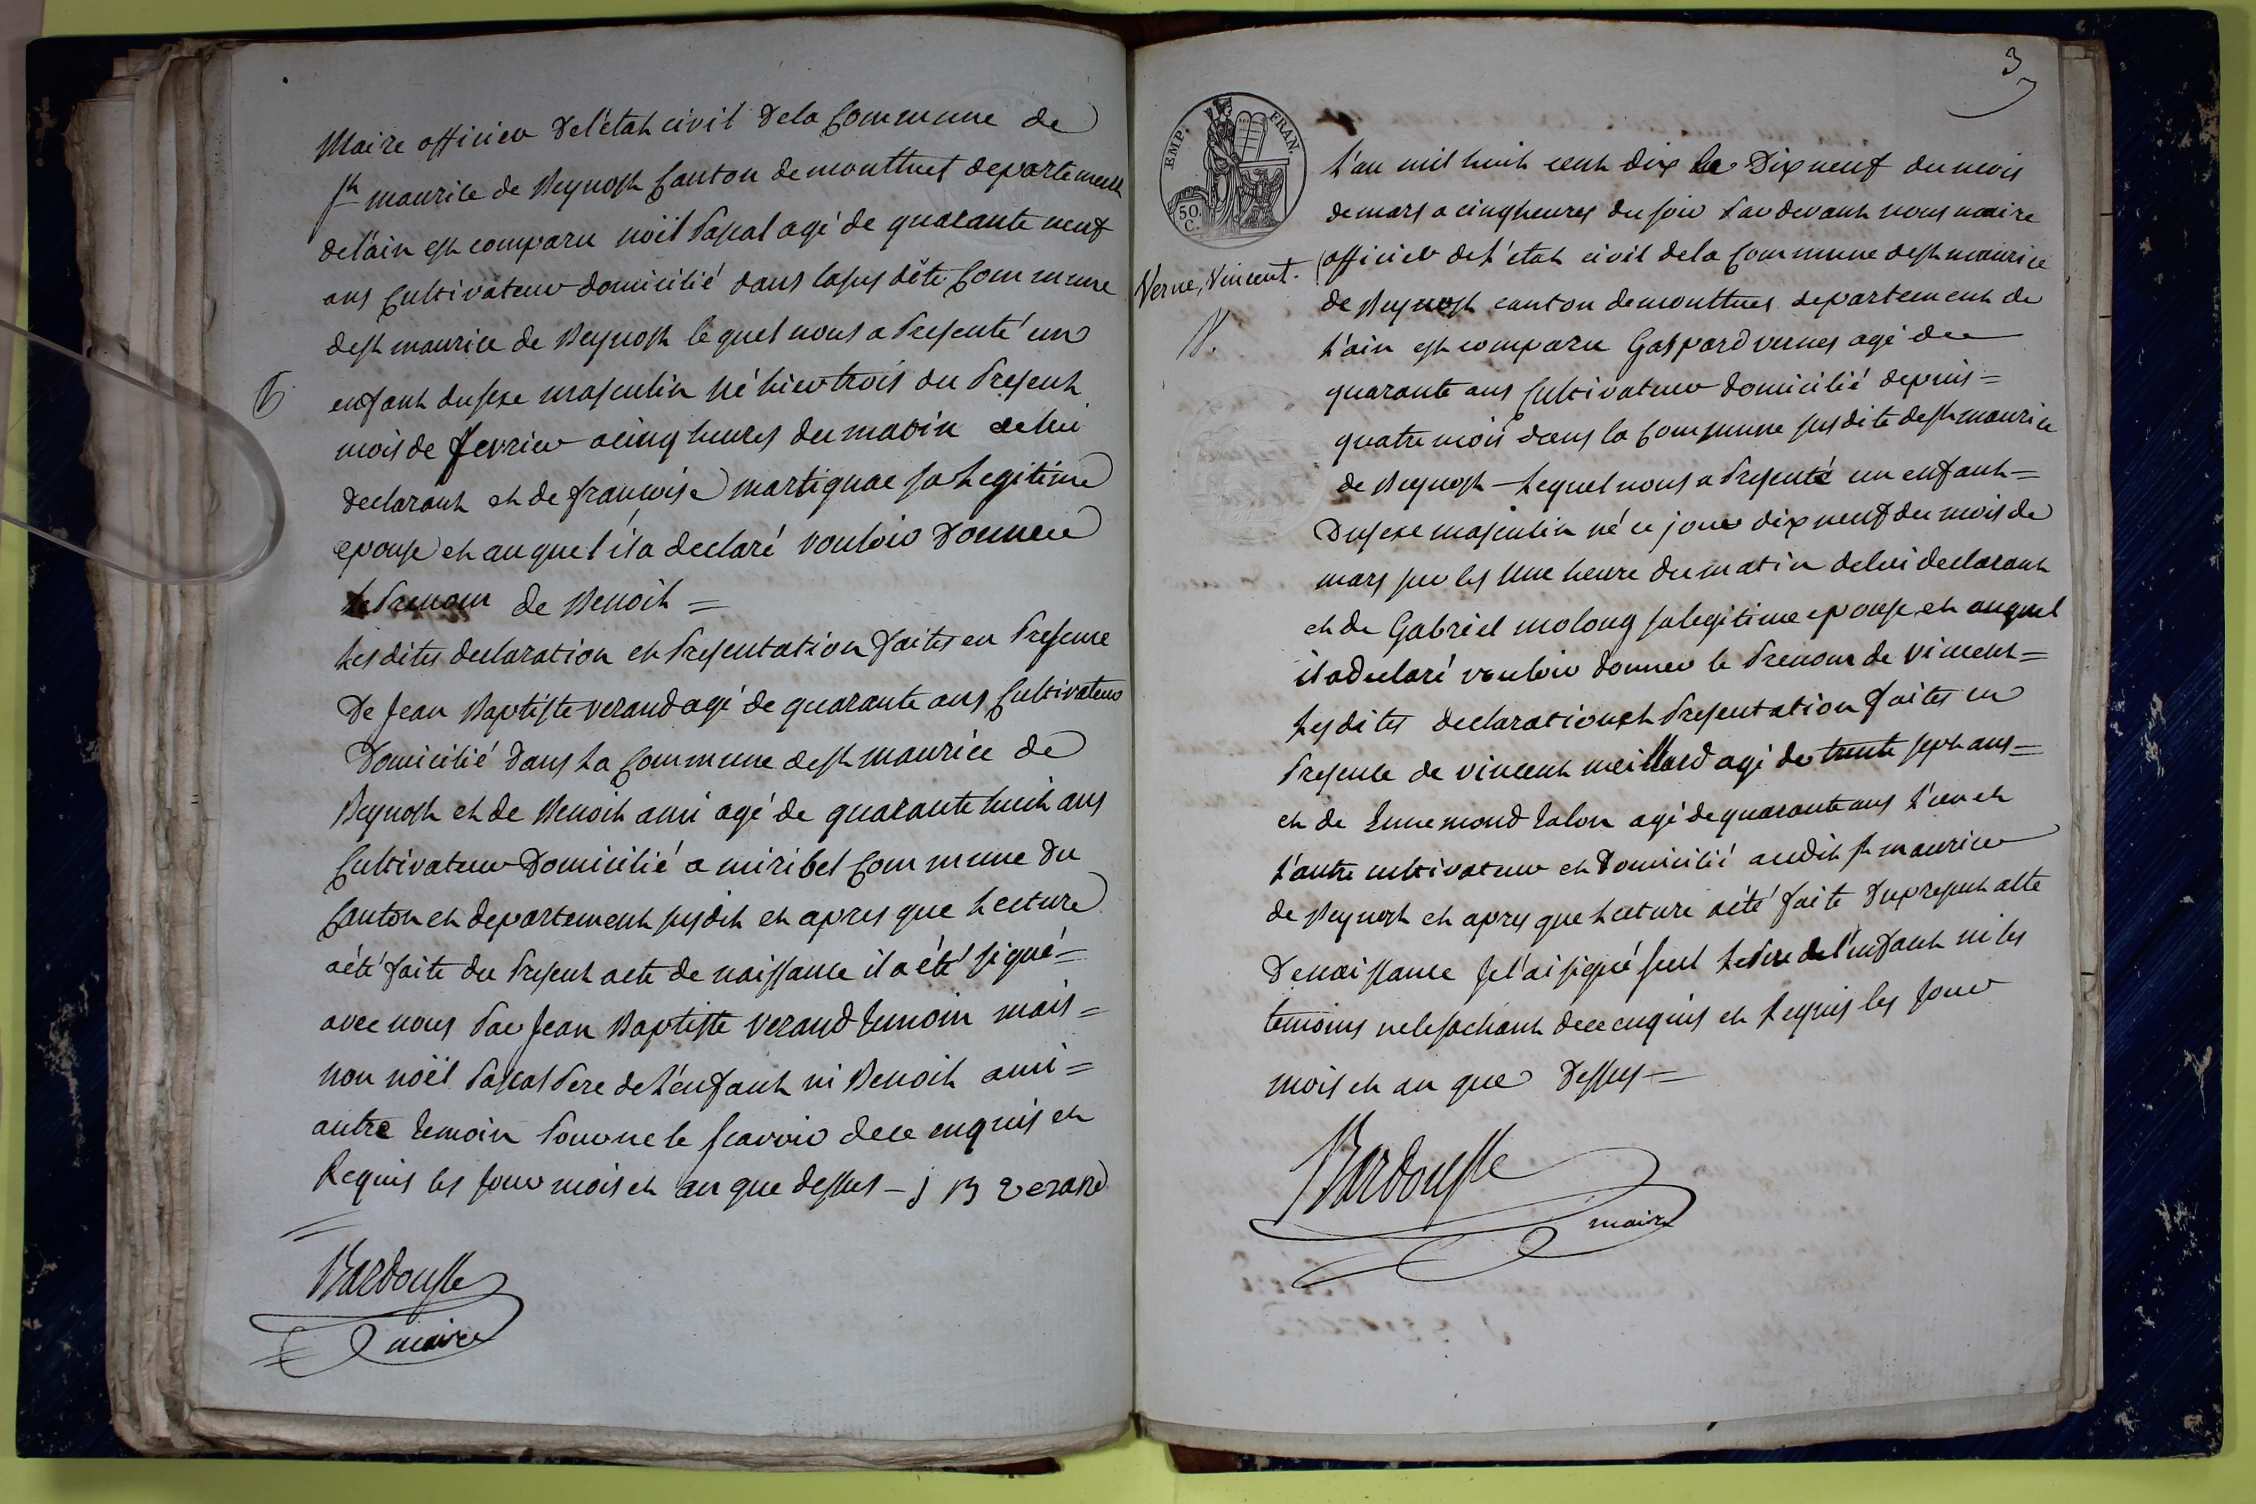 Maire officier de l'état civil de la Commune de
st maurice de Beynost Canton de montluel departement
de l'ain est comparu noël Pascal agé de quarante neuf
ans Cultivateur domicilié dans la susdite Commune
de st maurice de Beynost lequel nous a Presenté un
enfant du sexe masculin né hier trois du Present
mois de fevrier a cinq heures du matin de lui
declarant et de francoise martignac sa Legitime
epouse et auquel il a declaré vouloir Donner
le Prenom de Benoit =
Les dites declaration et Presentation faites en Presence
De Jean Baptiste verand agé de quarante ans Cultivateur
Domicilié dans La Commune de st maurice de
Beynost et de Benoit ami agé de quarante huit ans
Cultivateur Domicilié a miribel Commune du
Canton et departement susdit et apres que Lecture
a été faite du Present acte de naissance il a été signé =
avec nous Par Jean Baptiste verand temoin mais =
non noël Pascal Pere de L'enfant ni Benoit ami =
autre temoin Pour ne le scavoir de ce enquis et
Requis les jour mois et an que dessus - j B verand
Bardousse
maire
3
EMP. FRAN.
50.
C.
L'an mil huit cent dix le Dix neuf du mois
de mars a cinq heures du soir Par devant nous maire
officier de L'état civil de la Commune de st maurice
Verne, Vincent.
de Beynost canton de montluel departement de
L'ain est comparu Gaspard vernes agé de
quarante ans Cultivateur domicilié depuis =
quatre mois dans la Commune susdite de st maurice
de Beynost Lequel nous a Presenté un enfant =
Du sexe masculin né ce jour dix neuf du mois de
mars sur les une heure du matin de lui declarant
et de Gabriel molong sa legitime epouse et auquel
il a declaré vouloir donner le Prenom de vincent =
Les dites declaration et Presentation faites en
Presence de vincent meillard agé de trente sept ans =
et de Ennemond talon agé de quarante ans L'un et
L'autre cultivateur et Domicilié audit st maurice
de Beynost et apres que Lecture a été faite du present acte
De naissance je l'ai signé seul Le Pere de l'enfant ni les
temoins ne le sachant de ce enquis et Requis les jour
mois et an que Dessus =
Bardousse
maire